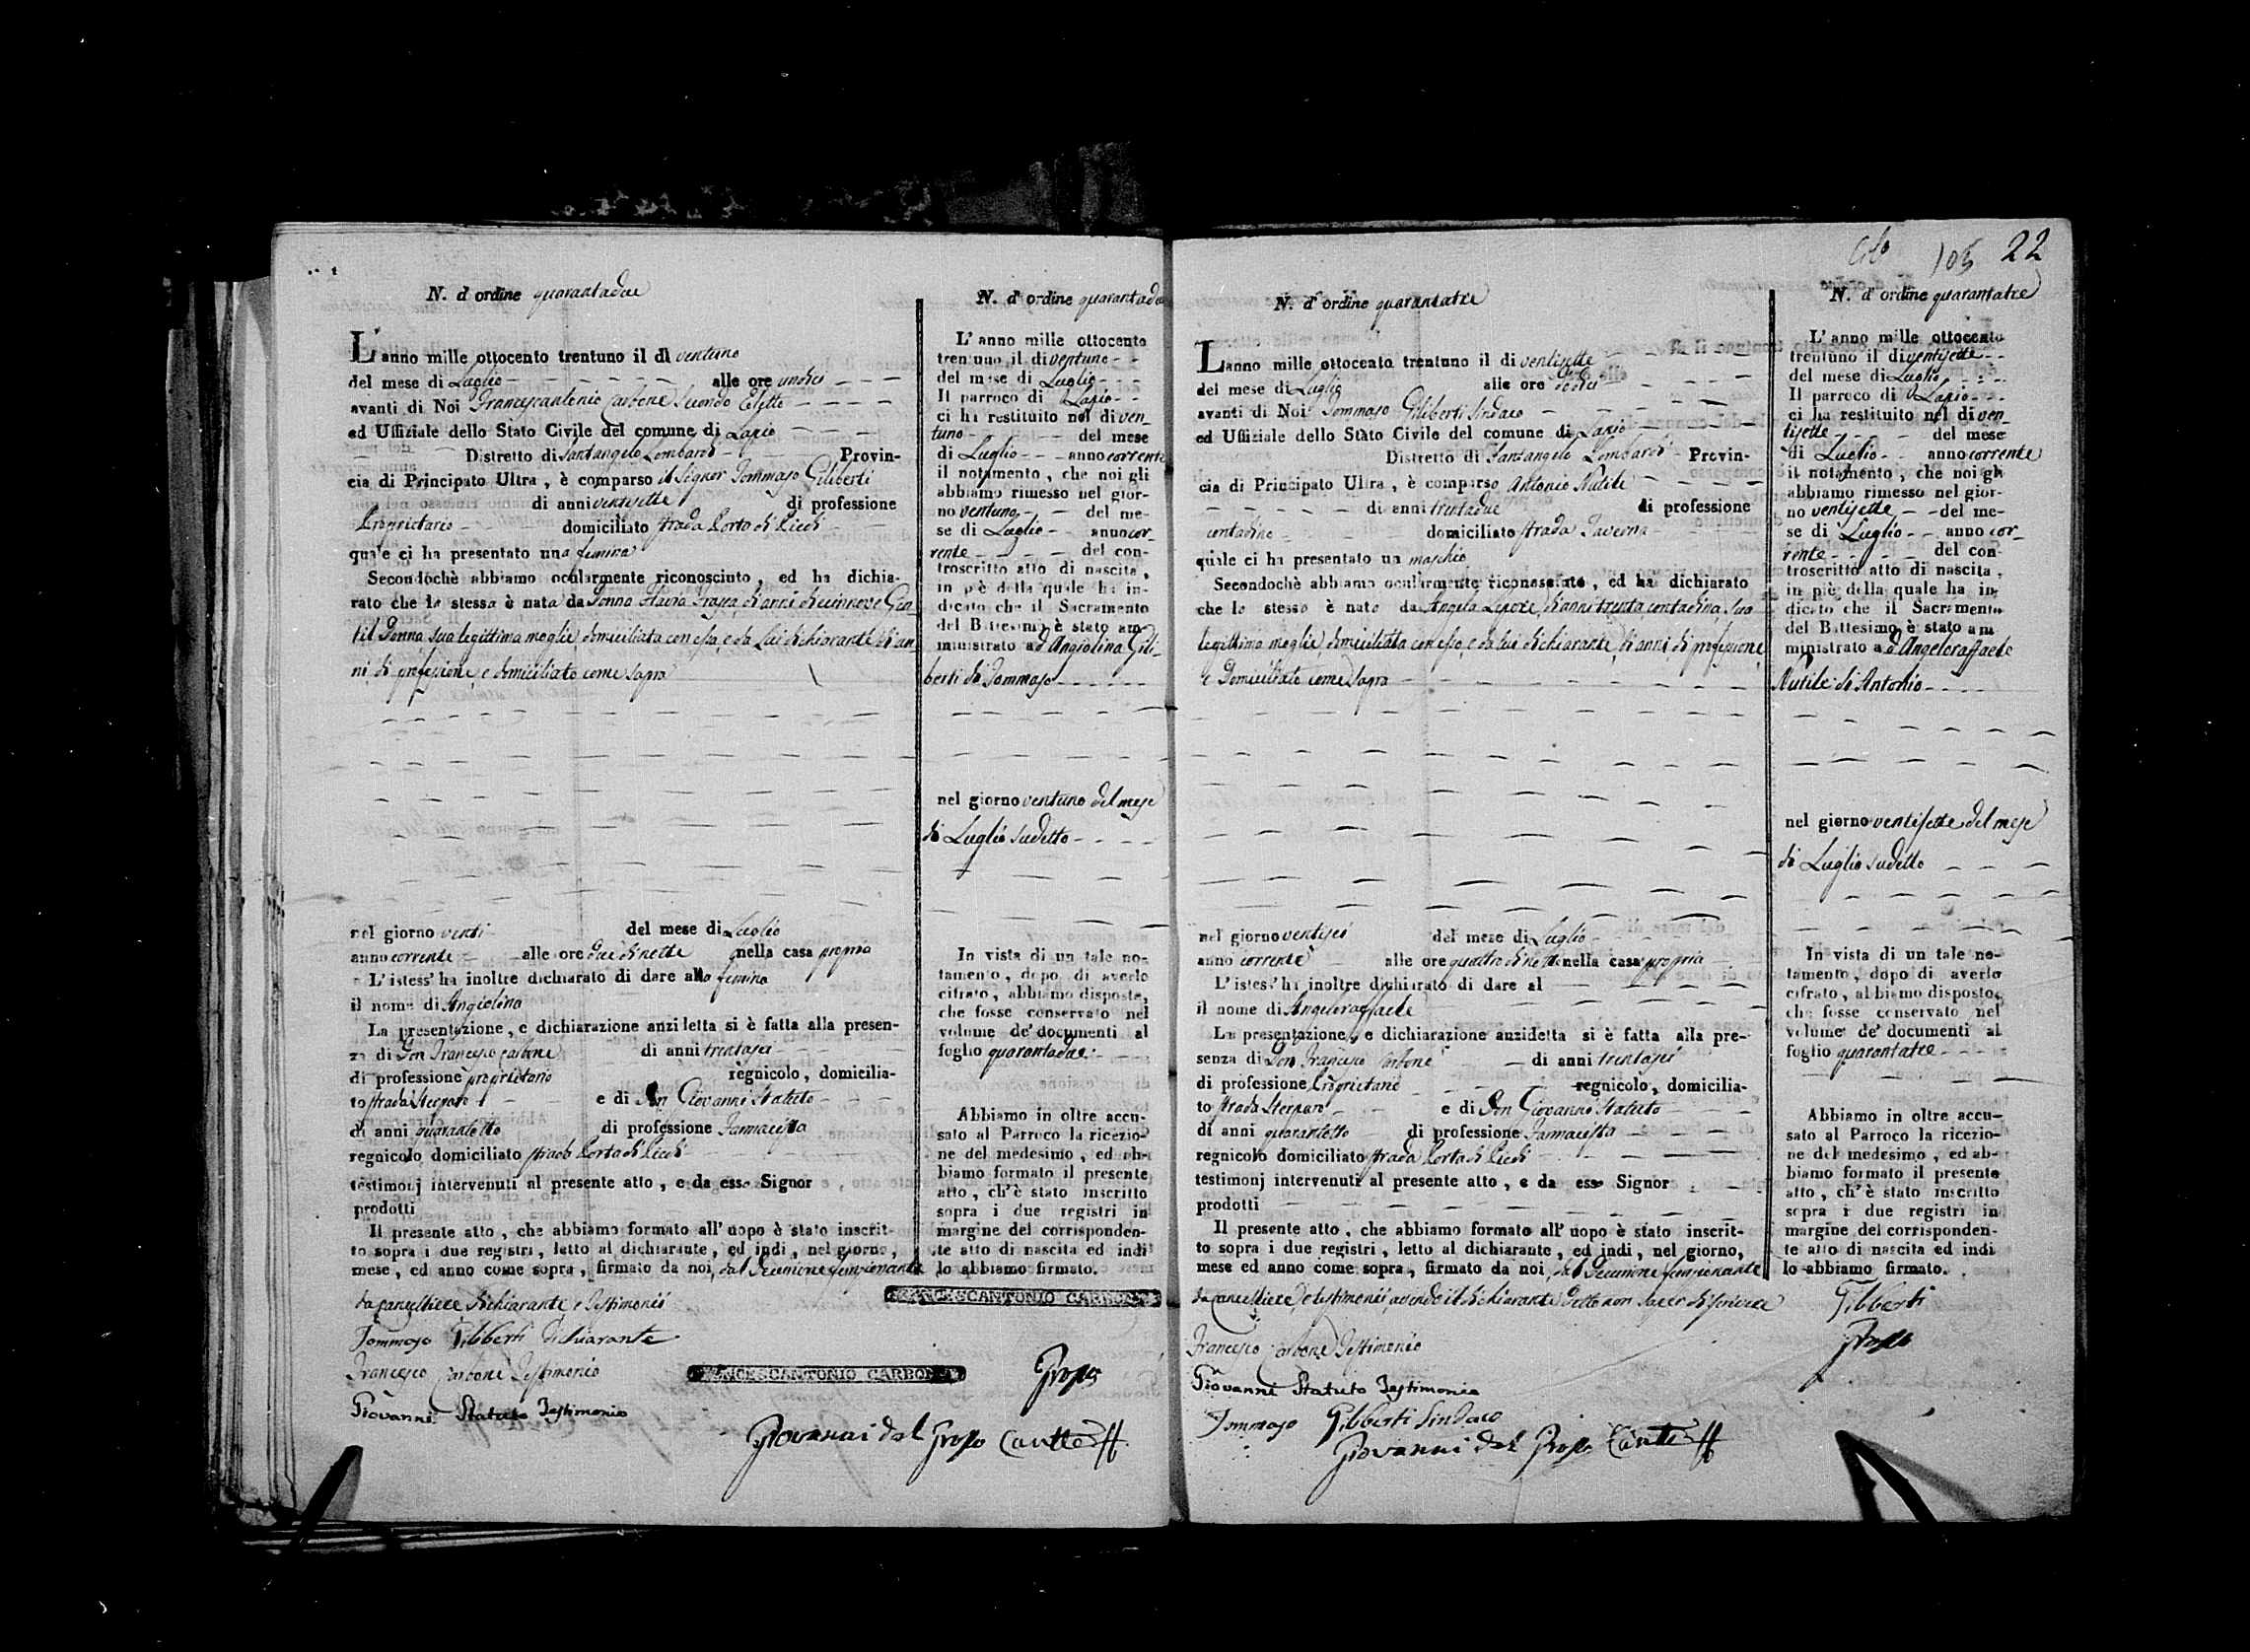 N. d'ordine quarantadue
L'anno mille ottocento trentuno il dì ventuno
del mese di Luglio alle ore undici
avanti di Noi Francescantonio Carbone Secondo Eletto
ed Uffiziale dello Stato Civile del comune di Lapio
Distretto di Santangelo Lombardi Provin-
cia di Principato Ultra, è comparso il Signor Tommaso Giliberti
di anni ventisette di professione
Proprietario domiciliato strada Porta di Piedi
quale ci ha presentato una femina
Secondochè abbiamo ocularmente riconosciuto, ed ha dichia-
rato che la stessa è nata da Donna Flavia di anni diecinnove Gen
til Donna sua legittima moglie, domiciliata con esso, e da Lui dichiarante di an
ni di professione, e domiciliato come sopra
nel giorno venti del mese di Luglio
anno corrente alle ore due di notte nella casa propria
L'istess' ha inoltre dichiarato di dare alla femina
il nome di Angiolina
La presentazione, e dichiarazione anziletta si è fatta alla presen-
za di Don Francesco Carbone di anni trentasei
di professione proprietario regnicolo, domicilia-
to strada Sterparo e di Don Giovanni Statuto
di anni quarantotto di professione Farmacista
regnicolo domiciliato strada Porta di Piedi
testimonj intervenuti al presente atto, e da esso Signor
prodotti
Il presente atto, che abbiamo formato all' uopo è stato inscrit-
to sopra i due registri, letto al dichiarante, ed indi, nel giorno,
mese, ed anno come sopra, firmato da noi, dal Decurione funzionante
da Cancelliere dichiarante e Testimonii
Tommaso Giliberti Dichiarante
Francesco Carbone Testimonio
Giovanni Statuto Testimonio
FRANCESCANTONIO CARBONE
Giovanni del Grosso
N. d'ordine quarantadue
L'anno mille ottocento
trentuno il di ventuno
del mese di Luglio
Il parroco di Lapio
ci ha restituito nel di ven_
tuno del mese
di Luglio anno corrente
il notamento, che noi gli
abbiamo rimesso nel gior-
no ventuno del me-
se di Luglio anno cor_
rente del con-
troscritto atto di nascita,
in piè della quale ha in-
dicato che il Sacramento
del Battesimo è stato am-
ministrato ad Angiolina Gili_
berti di Tommaso
nel giorno ventuno del mese
di Luglio sudetto
In vista di un tale no-
tamento, dopo di averlo
cifrato, abbiamo disposto,
che fosse conservato nel
volume de' documenti al
foglio quarantadue
Abbiamo in oltre accu-
sato al Parroco la ricezio-
ne del medesimo, ed ab-
biamo formato il presente
atto, ch'è stato inscritto
sopra i due registri in
margine del corrisponden-
te atto di nascita ed indi
lo abbiamo firmato.
FRANCESCANTONIO CARBONE
Grosso
105 22
N. d' ordine quarantatre
L'anno mille ottocento trentuno il di ventisette
del mese di Luglio alle ore dodici
avanti di Noi Tommaso Giliberti Sindaco
ed Uffiziale dello Stato Civile del comune di Lapio
Distretto di Santangelo Lombardi Provin-
cia di Principato Ultra, è comparso Antonio Nutile
di anni trentadue di professione
contadino domiciliato strada Taverna
quale ci ha presentato un maschio
Secondochè abbiamo ocularmente riconosciuto, ed ha dichiarato
che lo stesso è nato da Angela Lepore, di anni trenta contadina, sua
legittima moglie, domiciliata con esso, e da lui dichiarante, di anni, di professione,
e Domiciliato come sopra
nel giorno ventisei del mese di Luglio
anno corrente alle ore quattro di notte nella casa propria
L'istess' ha inoltre dichiarato di dare al
il nome di Angeloraffaele
La presentazione, e dichiarazione anzidetta si è fatta alla pre-
senza di Don Francesco Carbone di anni trentasei
di professione Proprietario regnicolo, domicilia-
to strada Sterparo e di Don Giovanni Statuto
di anni quarantotto di professione Farmacista
regnicolo domiciliato strada Porta di Piedi
testimonj intervenuti al presente atto, e da esso Signor
prodotti
Il presente atto, che abbiamo formato all' uopo è stato inscrit-
to sopra i due registri, letto al dichiarante, ed indi, nel giorno,
mese ed anno come sopra, firmato da noi, dal Decurione funzionante
da Cancelliere, e testimonii, avendo il dichiarante detto non saper di scrivere
Francesco Carbone Testimonio
Giovanni Statuto Testimonio
Tommaso Giliberti Sindaco
Giovanni del Grosso
N. d' ordine quarantatre
L' anno mille ottocento
trentuno il di ventisette
del mese di Luglio
Il parroco di Lapio
ci ha restituito nel di ven_
tisette del mese
di Luglio anno corrente
il notamento, che noi gli
abbiamo rimesso nel gior-
no ventisette del me-
se di Luglio anno cor_
rente del con-
troscritto atto di nascita,
in piè della quale ha in-
dicato che il Sacramento
del Battesimo è stato am
ministrato ad Angeloraffaele
Nutile di Antonio
nel giorno ventisette del mese
di Luglio sudetto
In vista di un tale no-
tamento, dopo di averlo
cifrato, abbiamo disposto,
che fosse conservato nel
volume de' documenti al
foglio quarantatre
Abbiamo in oltre accu-
sato al Parroco la ricezio-
ne del medesimo, ed ab-
biamo formato il presente
atto, ch'è stato inscritto
sopra i due registri in
margine del corrisponden-
te atto di nascita ed indi
lo abbiamo firmato.
Giliberti
Grosso